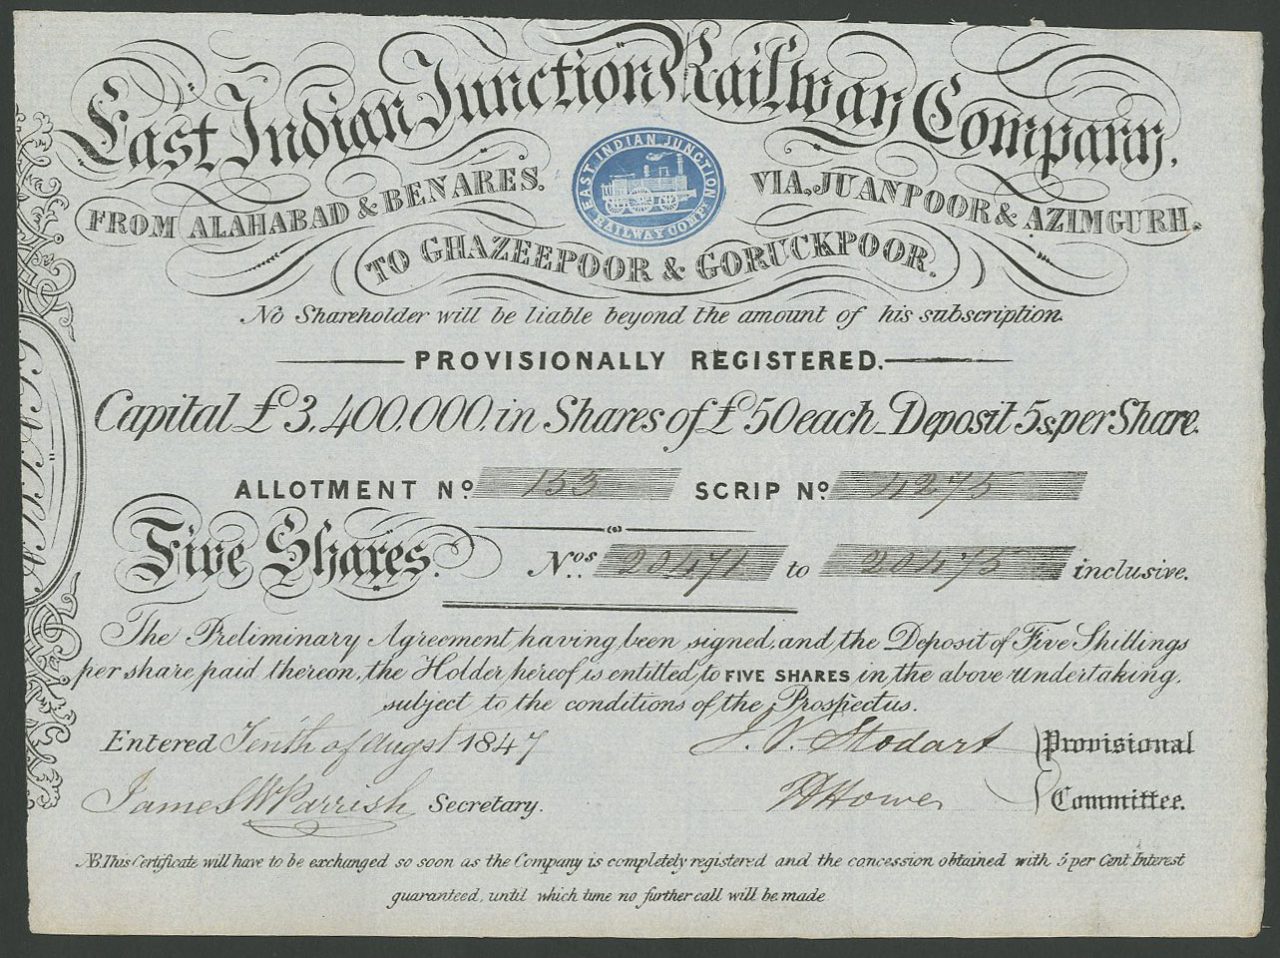 East Indian Junction Railway Company.
FROM ALAHABAD & BENARES. VIA, JUANPOOR & AZIMGURH.
EAST INDIAN JUNCTION
RAILWAY COMPY
TO GHAZEEPOOR & GORUCKPOOR.
No Shareholder will be liable beyond the amount of his subscription.
PROVISIONALLY REGISTERED.
Capital £3,400,000, in Shares of £50 each _ Deposit 5s, per Share.
ALLOTMENT No. 153 SCRIP No. 4275
Five Shares. Nos. 20471 to 20475 inclusive.
The Preliminary Agreement having been signed, and the Deposit of Five Shillings
per share paid thereon, the Holder hereof is entitled, to FIVE SHARES in the above Undertaking,
subject to the conditions of the Prospectus.
Entered Tenth of Augst 1847 J. V. Stodart Provisional
James W Parrish Secretary. Howe Committee.
NB. This Certificate will have to be exchanged so soon as the Company is completely registered and the concession obtained with 5 per Cent Interest
guaranteed, until which time no further call will be made